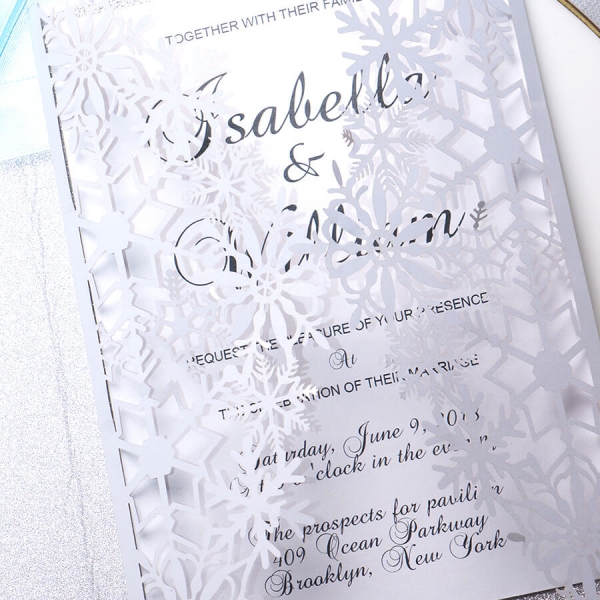 TOGETHER WITH THEIR FAMIL
Isabella
&
William
REQUEST THE PLEASURE OF YOUR PRESENCE
At
THE CELEBRATION OF THEIR MARRIAGE
Saturday, June 9, 2018
o'clock in the evening
The prospects for pavilion
409 Ocean Parkway
Brooklyn, New York